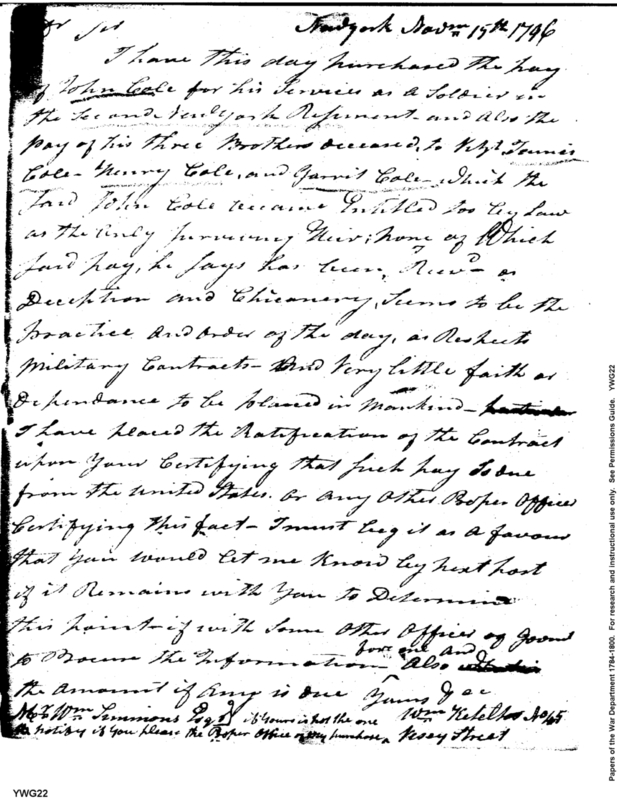 Sir Newyork Novm 15th 1796
I have this day purchased the pay
of John Cole for his Services as a Soldier in
the Second New York Regiment and Also the
pay of his three Brothers deceased, to
Cole - Henry Cole, and Garrit Cole - which the
Said John Cole became Entitled too by Law
as the only Surviving Heir; none of Which
Said pay, he Says has been, Recd as
Deception and Chicanery, Seems to be the
practice and order of the day, as Respects
Military Contracts - And Very little faith or
Dependance to be placed in Mankind -
I have placed the Ratification of the Contract
upon Your Certifying that Such pay is due
from the United States. or Any Other Proper Officer
Certifying this fact - I must beg it as a favour
that You would let me Know by next post
if it Remains with You to Determine
this point - if with Some Other Officer of Govmt
to Procure the Information for me and Also
the amount if Any is due Yours &c
Wm Simmons Esqr if Yours is not the one Wm Keteltas No 45
notify if You please the Proper Office of my purchase Vesey Street
YWG22
Papers of the War Department 1784-1800. For research and instructional use only. See Permissions Guide. YWG22